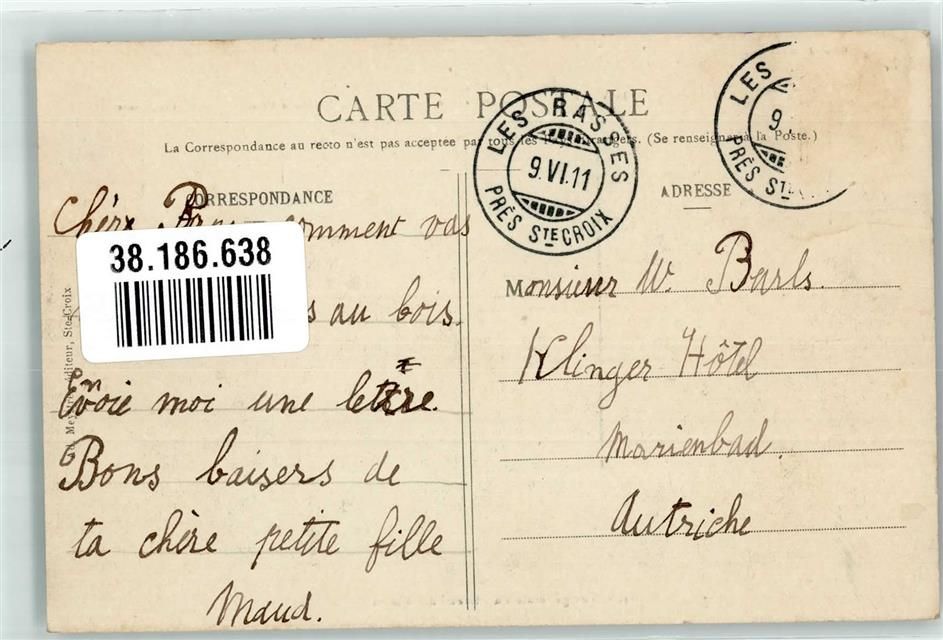 CARTE POSTALE
La Correspondance au recto n'est pas acceptée par tous les Pays étrangers. (Se renseigner à la Poste.)
LES RASSES
9.VI.11
PRÈS STE CROIX
LES
9.
PRÈS STE
CORRESPONDANCE
ADRESSE
Chère comment vas
38.186.638
s au bois.
Envoie moi une lettre.
Bons baisers de
ta chère petite fille
Maud.
Éditeur, Ste-Croix
Monsieur W. Barls.
Klinger Hôtel
Marienbad.
Autriche